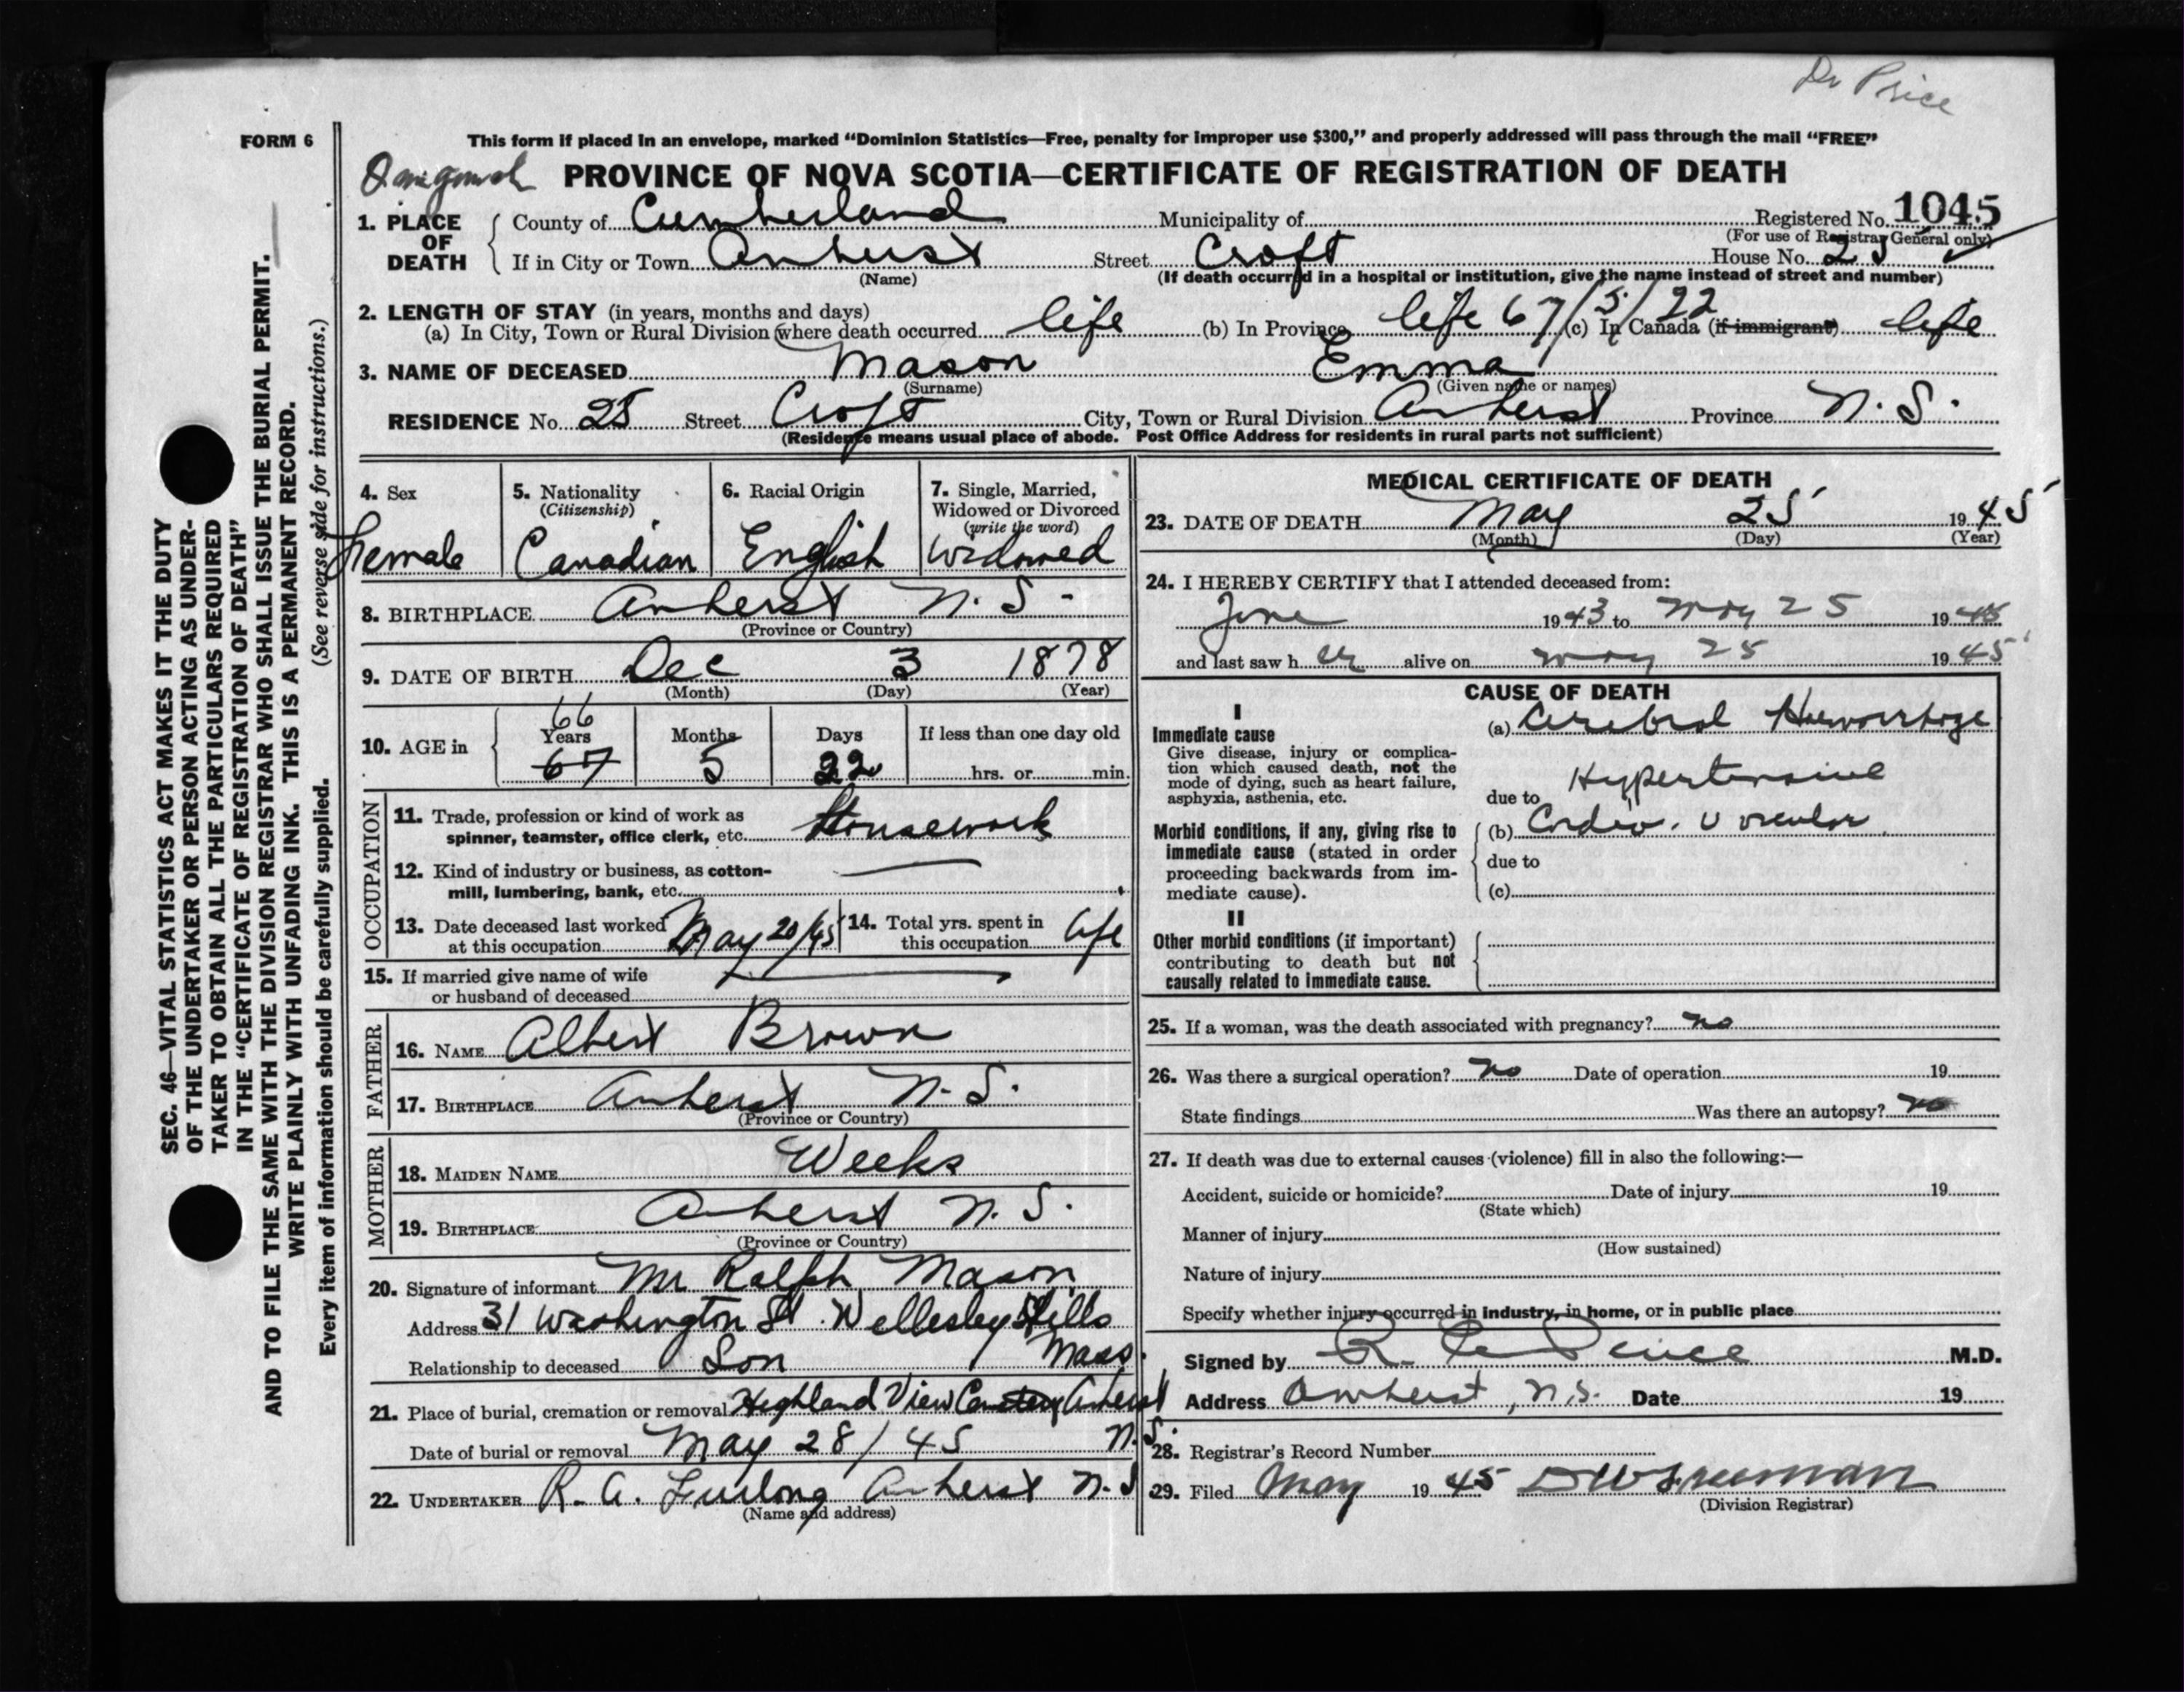 Dr Price
FORM 6
This form if placed in an envelope, marked “Dominion Statistics—Free, penalty for improper use $300,” and properly addressed will pass through the mail “FREE”
PROVINCE OF NOVA SCOTIA—CERTIFICATE OF REGISTRATION OF DEATH
1. PLACE OF DEATH
County of Cumberland Municipality of Registered No. 1045
(For use of Registrar General only)
If in City or Town Amherst Street Croft House No. 25
(Name) (If death occurred in a hospital or institution, give the name instead of street and number)
2. LENGTH OF STAY (in years, months and days)
(a) In City, Town or Rural Division where death occurred life (b) In Province life 67/5/22 (c) In Canada (if immigrant) life
3. NAME OF DECEASED Mason Emma
(Surname) (Given name or names)
RESIDENCE No. 25 Street Croft City, Town or Rural Division Amherst Province N.S.
(Residence means usual place of abode. Post Office Address for residents in rural parts not sufficient)
SEC. 46—VITAL STATISTICS ACT MAKES IT THE DUTY
OF THE UNDERTAKER OR PERSON ACTING AS UNDER-
TAKER TO OBTAIN ALL THE PARTICULARS REQUIRED
IN THE “CERTIFICATE OF REGISTRATION OF DEATH”
AND TO FILE THE SAME WITH THE DIVISION REGISTRAR WHO SHALL ISSUE THE BURIAL PERMIT.
WRITE PLAINLY WITH UNFADING INK. THIS IS A PERMANENT RECORD.
Every item of information should be carefully supplied. (See reverse side for instructions.)
4. Sex
Female
5. Nationality
(Citizenship)
Canadian
6. Racial Origin
English
7. Single, Married,
Widowed or Divorced
(write the word)
Widowed
8. BIRTHPLACE Amherst N.S.
(Province or Country)
9. DATE OF BIRTH Dec 3 1878
(Month) (Day) (Year)
10. AGE in
66
Years Months Days If less than one day old
67 5 22 hrs. or min.
OCCUPATION
11. Trade, profession or kind of work as
spinner, teamster, office clerk, etc. Housework
12. Kind of industry or business, as cotton-
mill, lumbering, bank, etc.
13. Date deceased last worked
at this occupation May 20/45
14. Total yrs. spent in
this occupation life
15. If married give name of wife
or husband of deceased
FATHER
16. NAME Albert Brown
17. BIRTHPLACE Amherst N.S.
(Province or Country)
MOTHER
18. MAIDEN NAME Weeks
19. BIRTHPLACE Amherst N.S.
(Province or Country)
20. Signature of informant Mr Ralph Mason
Address 31 Washington St. Wellesley Hills
Relationship to deceased Son Mass.
21. Place of burial, cremation or removal Highland View Cemetery Amherst
Date of burial or removal May 28/45 N.S.
22. UNDERTAKER R. A. Furlong Amherst N.S
(Name and address)
MEDICAL CERTIFICATE OF DEATH
23. DATE OF DEATH May 25 1945
(Month) (Day) (Year)
24. I HEREBY CERTIFY that I attended deceased from:
June 1943 to May 25 1945
and last saw her alive on May 25 1945
CAUSE OF DEATH
I
Immediate cause
Give disease, injury or complica-
tion which caused death, not the
mode of dying, such as heart failure,
asphyxia, asthenia, etc.
(a) Cerebral Haemorrhage
due to Hypertensive
Morbid conditions, if any, giving rise to
immediate cause (stated in order
proceeding backwards from im-
mediate cause).
(b) Cardio. Vascular
due to
(c)
II
Other morbid conditions (if important)
contributing to death but not
causally related to immediate cause.
25. If a woman, was the death associated with pregnancy? no
26. Was there a surgical operation? no Date of operation 19
State findings Was there an autopsy? no
27. If death was due to external causes (violence) fill in also the following:—
Accident, suicide or homicide? Date of injury 19
(State which)
Manner of injury
(How sustained)
Nature of injury
Specify whether injury occurred in industry, in home, or in public place
Signed by R. Price M.D.
Address Amherst, N.S. Date 19
28. Registrar's Record Number
29. Filed May 1945
(Division Registrar)